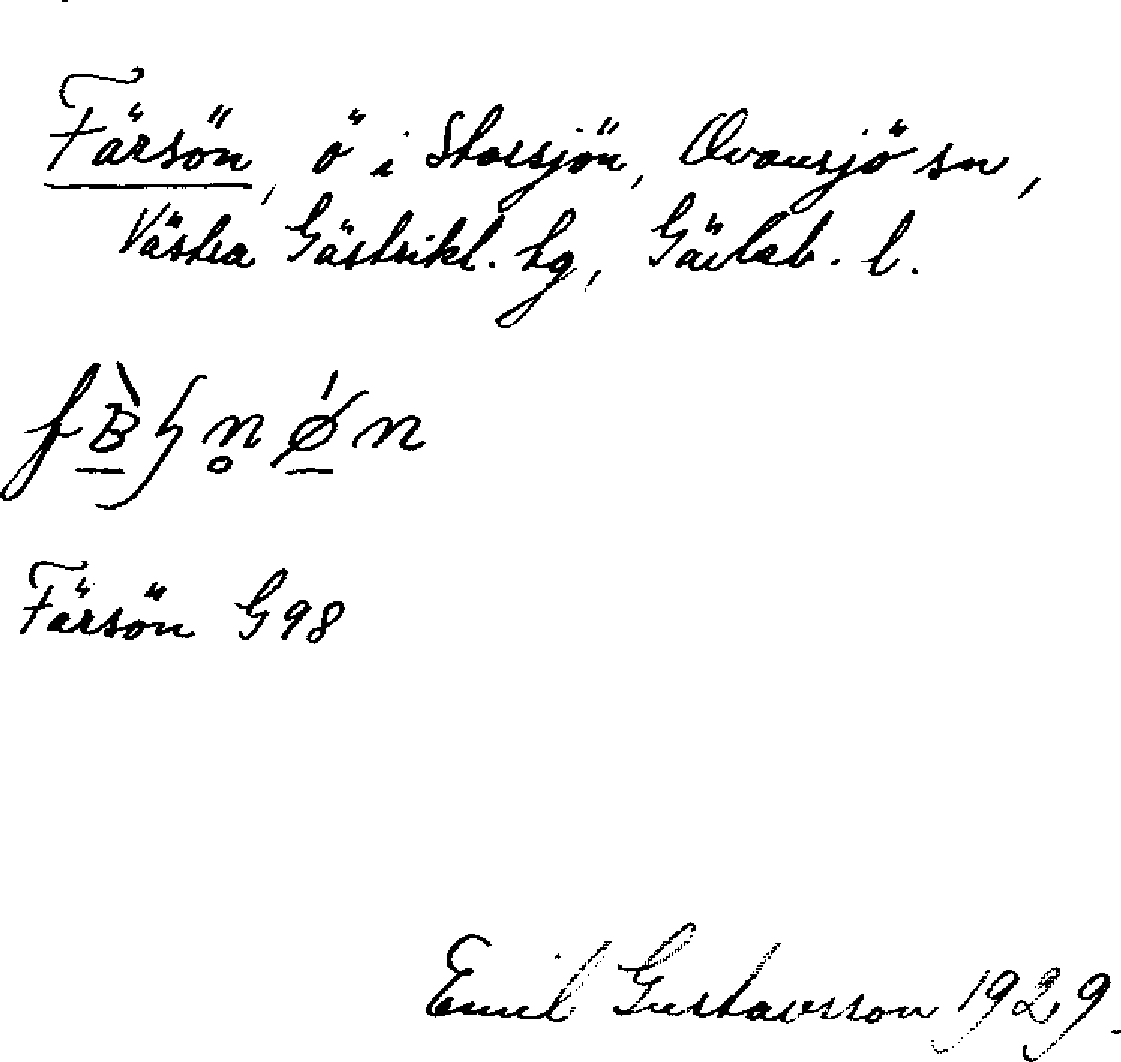 Färsön, ö i Storsjön, Ovansjö sn,
Västra Gästrikl. hg, Gävleb. l.
Färsön G98
Emil Gustavsson 1929.